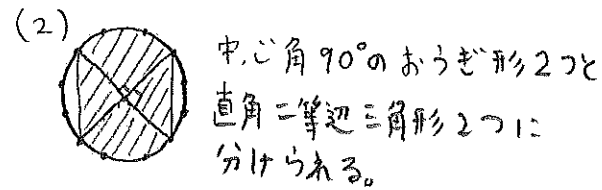 (2)
中心角90°のおうぎ形2つと
直角二等辺三角形2つに
分けられる。